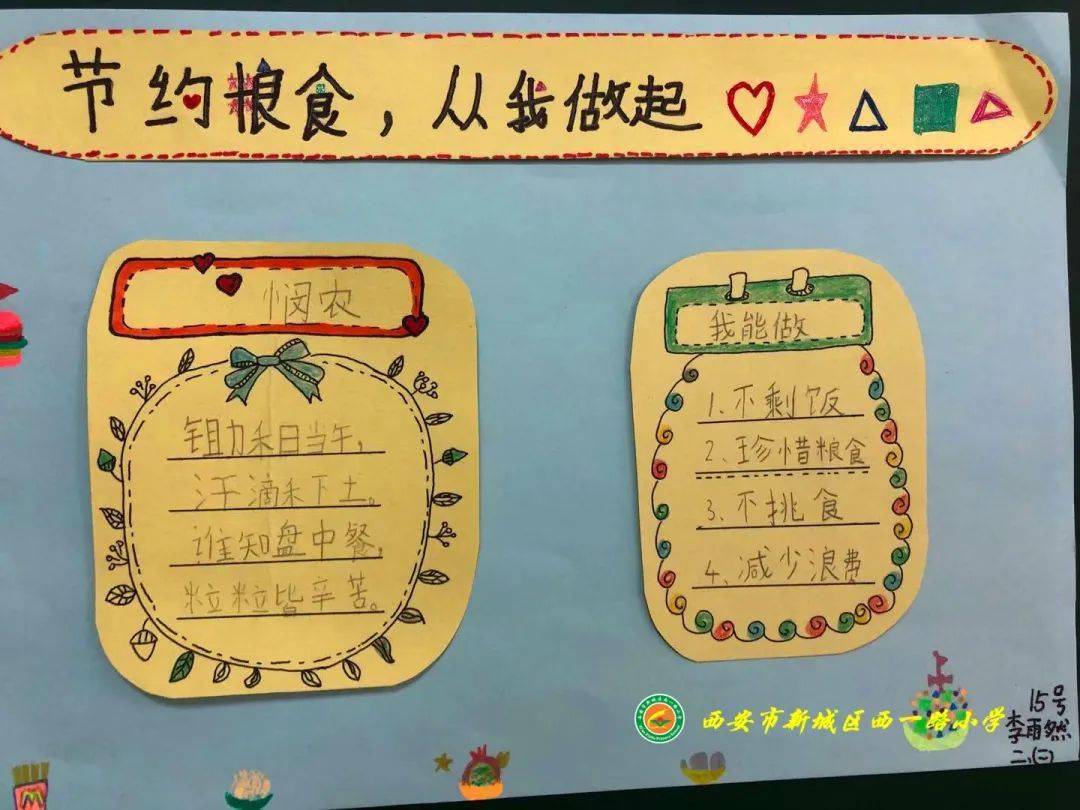 节约粮食，从我做起
悯农
锄禾日当午，
汗滴禾下土。
谁知盘中餐，
粒粒皆辛苦。
我能做
1.不剩饭
2.珍惜粮食
3.不挑食
4.减少浪费
西安市新城区西一路小学
15号
李雨然
二、(二)
M